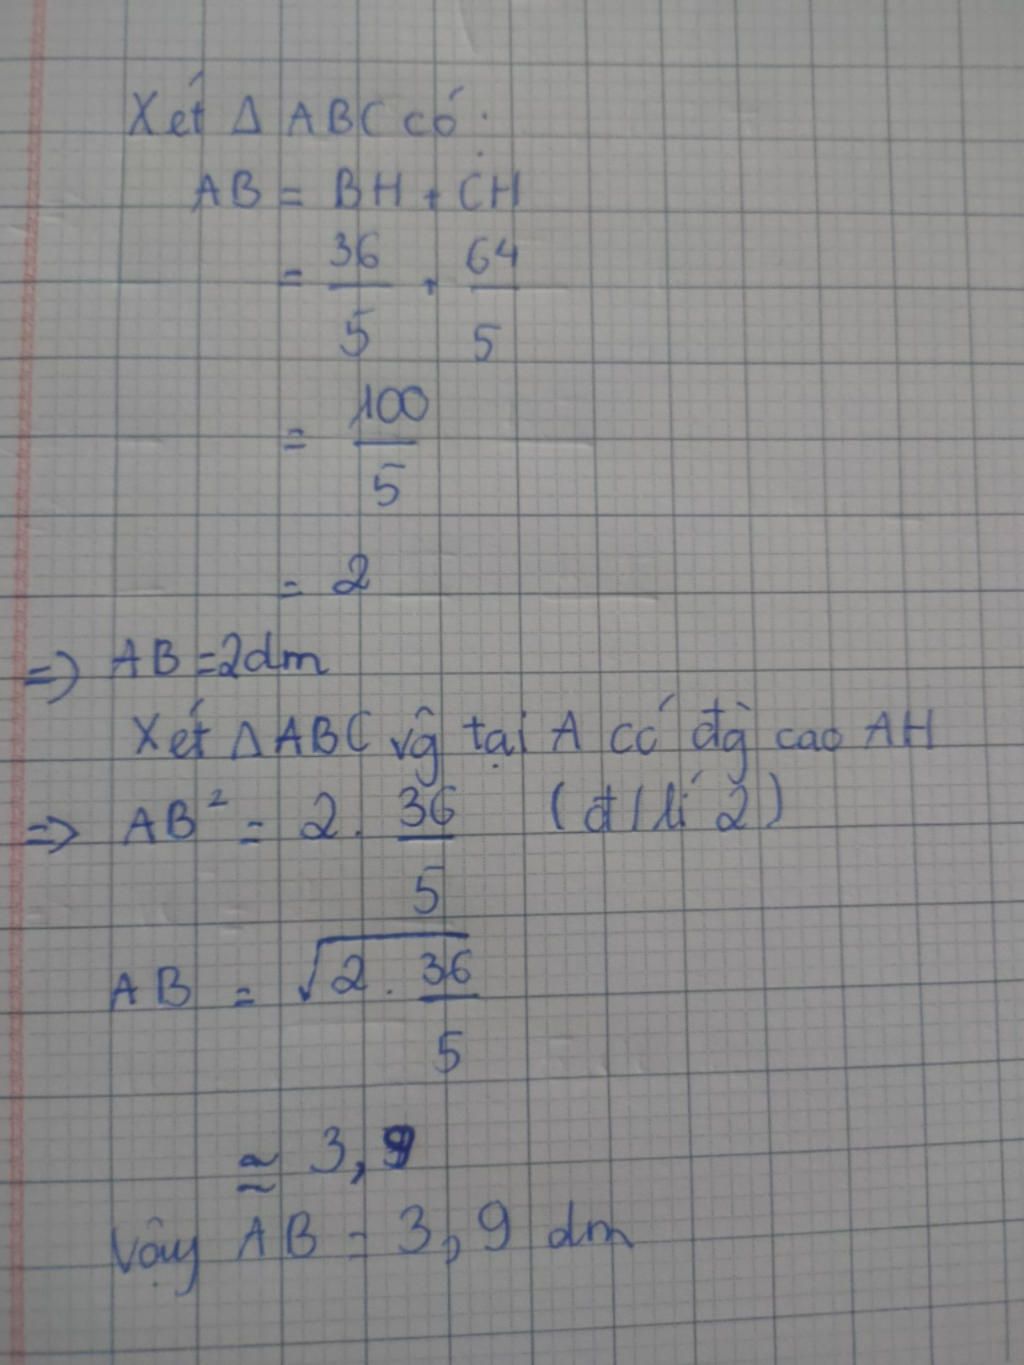 Xét Δ ABC có:
AB = BH + CH
= 36/5 + 64/5
= 100/5
= 2
=> AB = 2dm
Xét Δ ABC vg tại A có đg cao AH
=> AB² = 2. 36/5 (đ/lí 2)
AB = √2. 36/5
≈ 3,9
Vậy AB = 3,9 dm